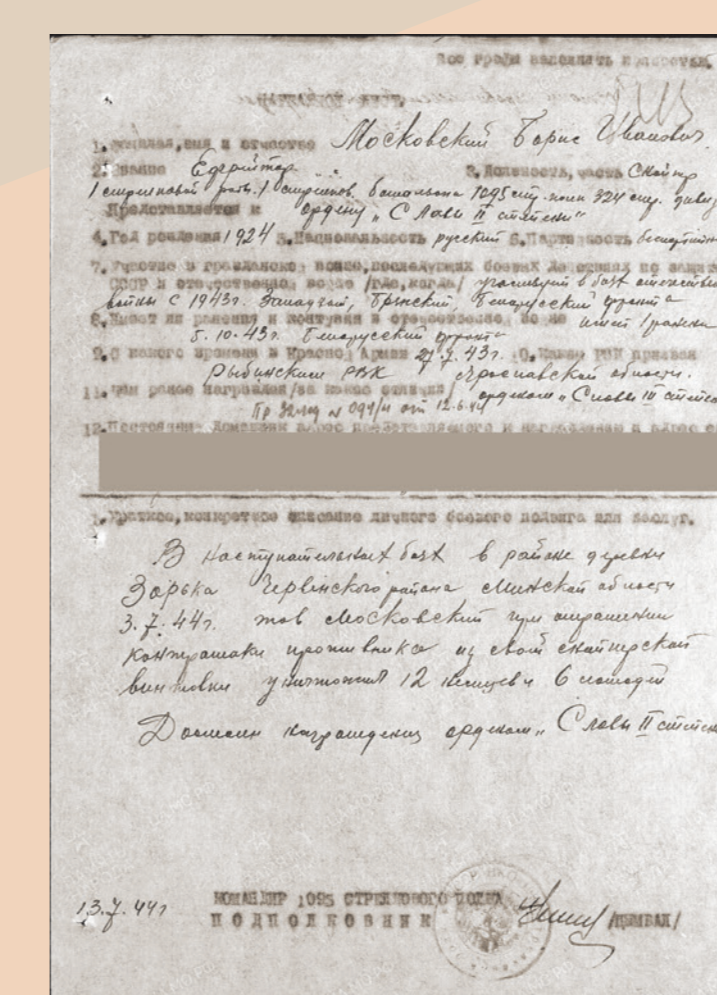 Все графы заполнять полностью
1. Фамилия, имя и отчество Московский Борис Иванович.
2. Звание Ефрейтор 3. Должность, часть Снайпер
1 стрелковой роты 1 стрелков. батальона 1095 стр. полк 324 стр. дивиз
Представляется к ордену „Славы II степени"
4. Год рождения 1924 5. Национальность русский 6. Партийность беспартийный
7. Участие в гражданской войне, последующих боевых действиях по защите
СССР и отечественной войне /где, когда/ участвует в боях отечествен
войны с 1943г. Западный, Брянский, Белорусский фронта
8. Имеет ли ранения и контузии в отечественной войне имеет 1 ранение
5.10.43г. Белорусский фронт
9. С какого времени в Красной Армии 27.7.43г. 10. Каким РВК призван
Рыбинским РВК Ярославской области.
11. Чем ранее награжден /за какие отличия/ орденом „Славы III степени
Пр № 091/н от 12.6.44
12. Постоянный домашний адрес представляемого к награждению и адрес
1. Краткое, конкретное описание личного боевого подвига или заслуг.
В наступательных боях в районе деревни
Зорька Червенского района Минской области
3.7.44г. тов Московский при отражении
контратаки противника из своей снайперской
винтовки уничтожил 12 немцев и 6 лошадей
Достоин награждения орденом „Славы II степени
13.7.44г КОМАНДИР 1095 СТРЕЛКОВОГО ПОЛКА
ПОДПОЛКОВНИК /ЦЫМБАЛ/